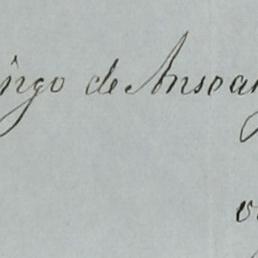 ingo de Ansoan